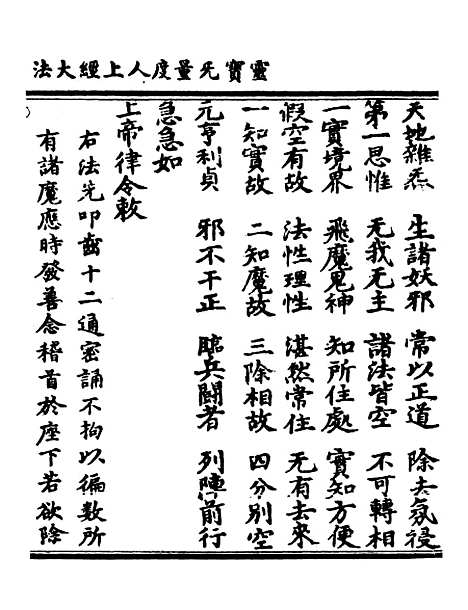 靈寶无量度人上經大法
天地雜炁　生諸妖邪　常以正道　除去氛祲
第一思惟　无我无主　諸法皆空　不可轉相
一實境界　飛魔鬼神　知所住處　實知方便
假空有故　法性理性　湛然常住　无有去來
一知實故　二知魔故　三除相故　四分別空
元亨利貞　邪不干正　臨兵鬪者　列陣前行
急急如
上帝律令敕
右法先叩齒十二通密誦不拘以徧數所
有諸魔應時發善念稽首於座下若欲除